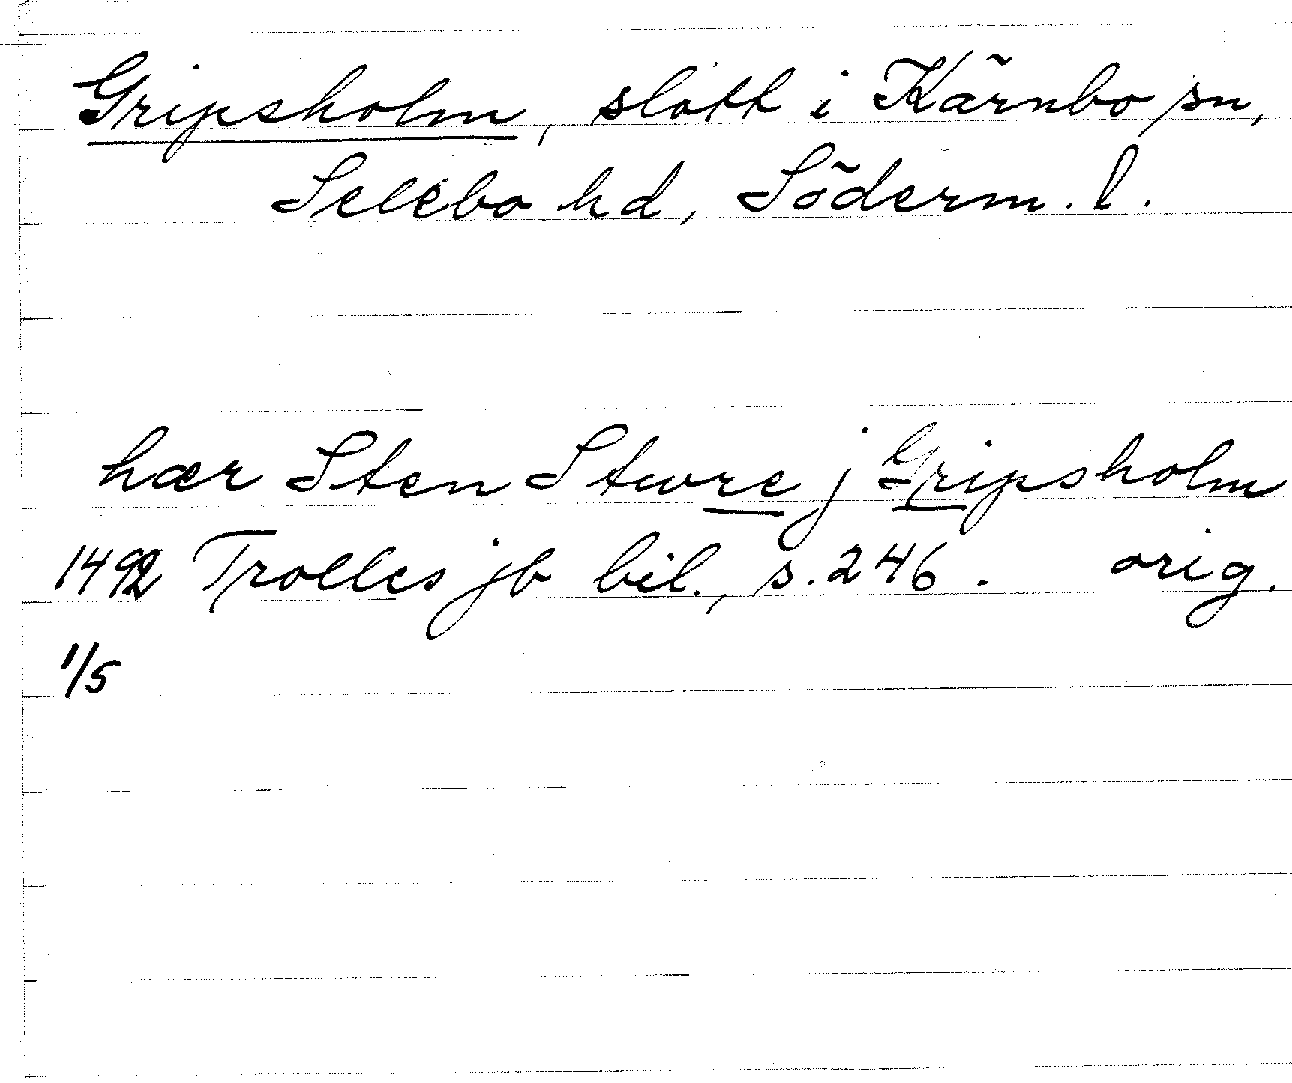 Gripsholm, slott i Kärnbo sn,
Selebo hd, Söderm. l.
hær Sten Stwre j Gripsholm
1492 Trolles jb bil., s. 246. orig.
1/5